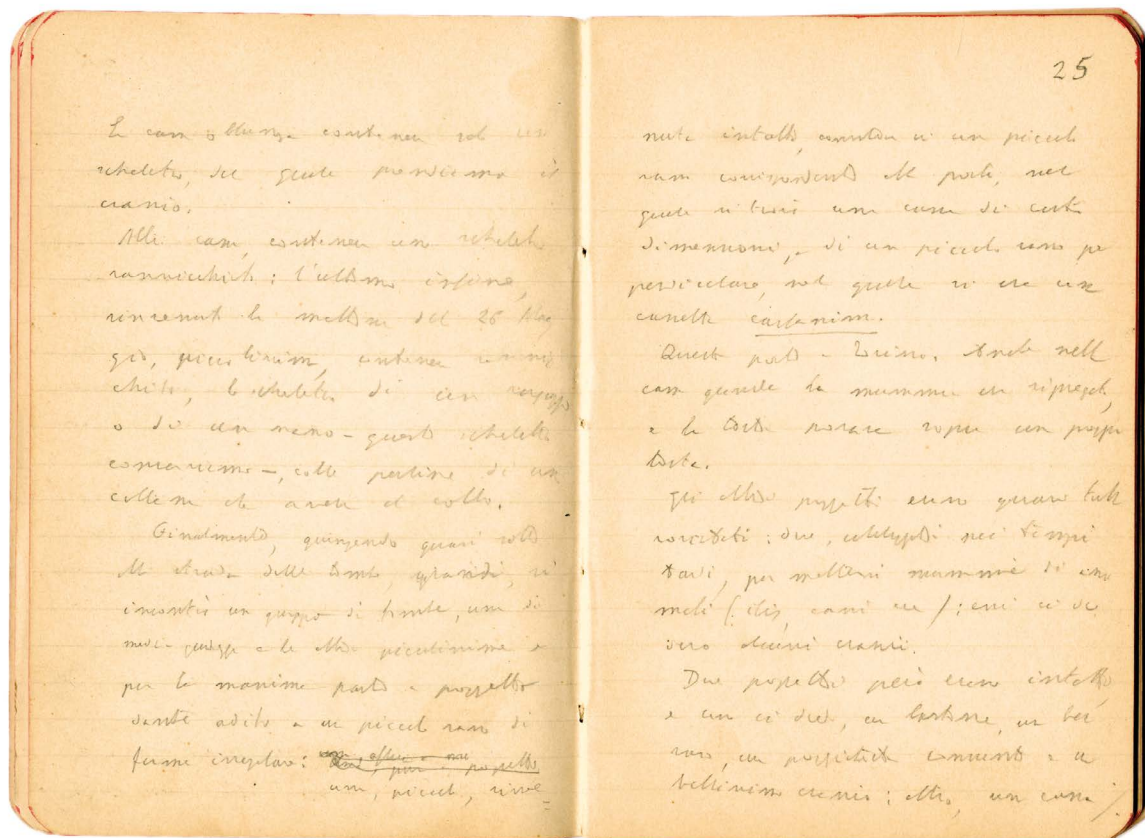 scheletro, del quale prendiamo il
cranio.
Altra cassa, contenea uno scheletro
rannicchiato: l'ultima infine,
rinvenuta la mattina del 26 Mag
gio, piccolissima, contenea rannic
chiato, lo scheletro di un ragazzo
o di un nano - questo scheletro
conserviamo -, colle perline di una
collana che aveva al collo.
Finalmente, giungendo quasi sotto
alla strada delle tombe grandi, si
incontrò un gruppo di tombe, una di
media grandezza e le altre piccolissime e
per la massima parte a pozzetto
dante adito a un piccolo vano di
forma irregolare:
una, piccola, rinve=
25
nuta intatta, consisteva in un piccolo
vano corrispondente alla porta, nel
quale si trovò una cassa di certe
dimensioni, e di un piccolo vano per
pendicolare, nel quale vi era una
cassetta
Questa portò a Torino. Anche nella
cassa grande la mummia era ripiegata,
e la testa posava sopra un poggia
testa.
Gli altri pozzetti erano quasi tutti
due, nei tempi
tardi, per mettervi mummie di ani
mali (ibis, cani ecc); essi ci die
dero alcuni crani.
Due pozzetti però erano intatti,
e uno ci diede, un bastone, un bel
vaso, un poggiatesta e un
bellissimo cranio; altro, una cassa